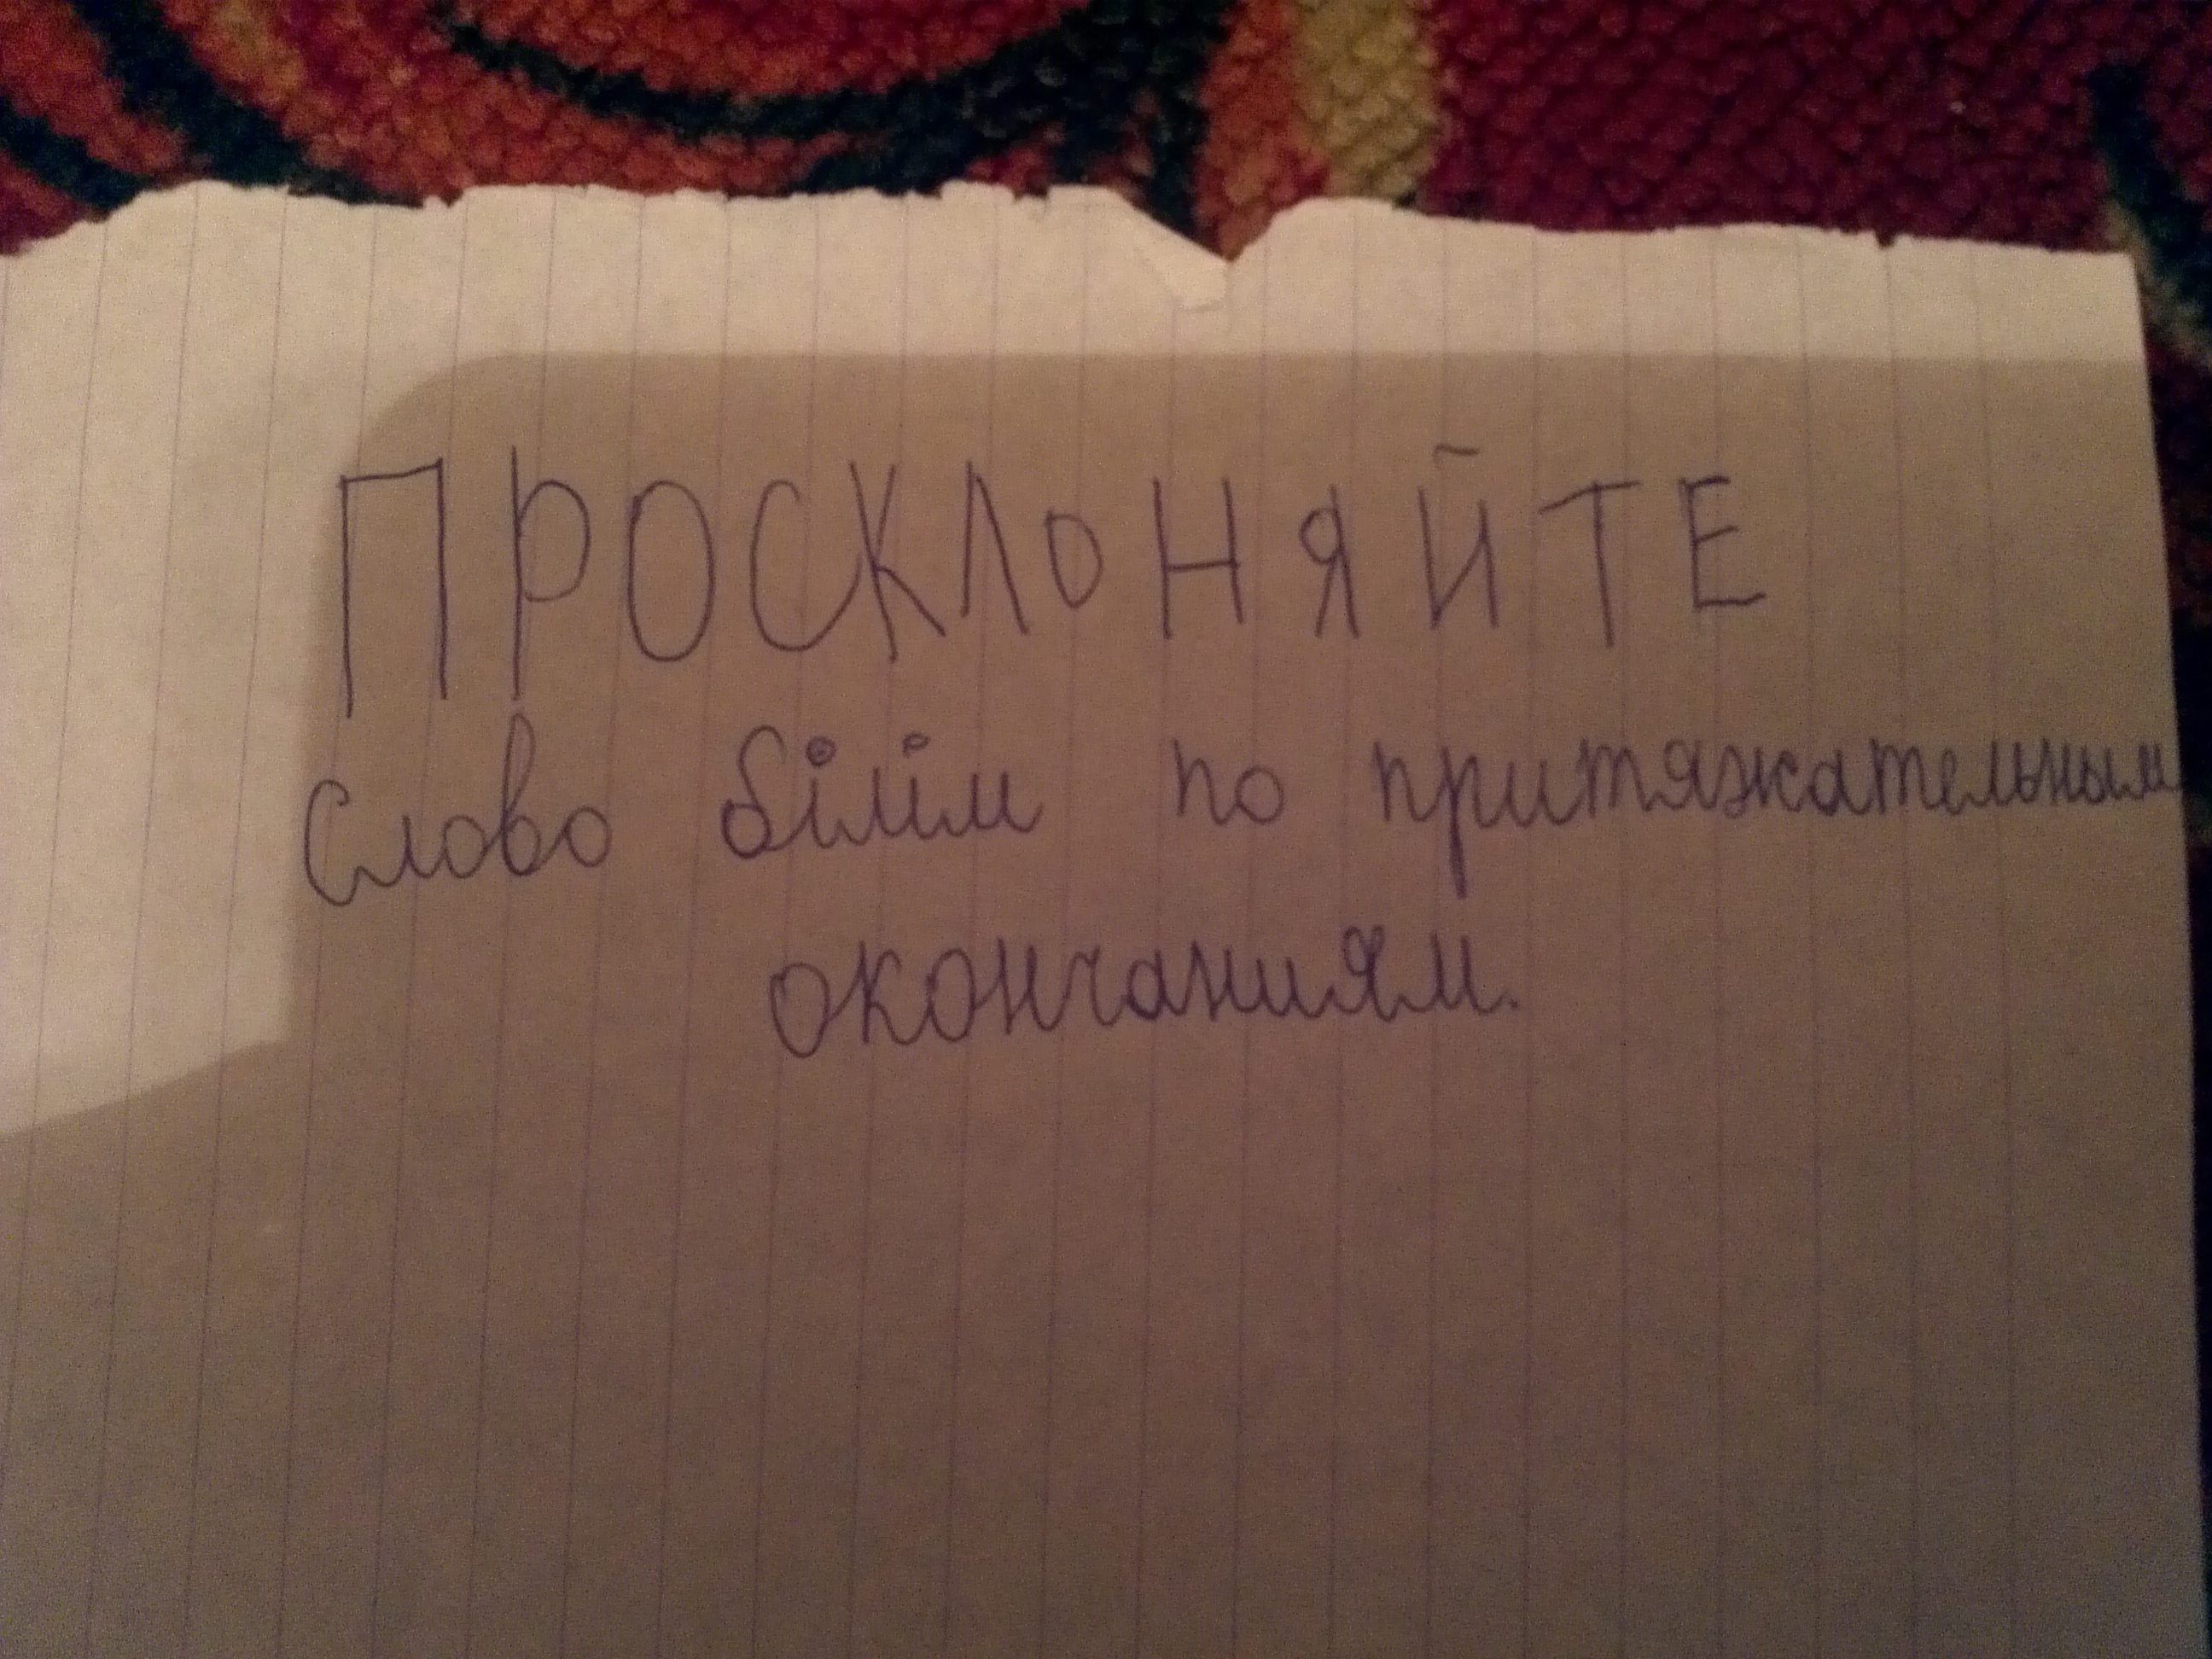 ПРОСКЛОНЯЙТЕ
Слово білім по притяжательным
окончаниям.